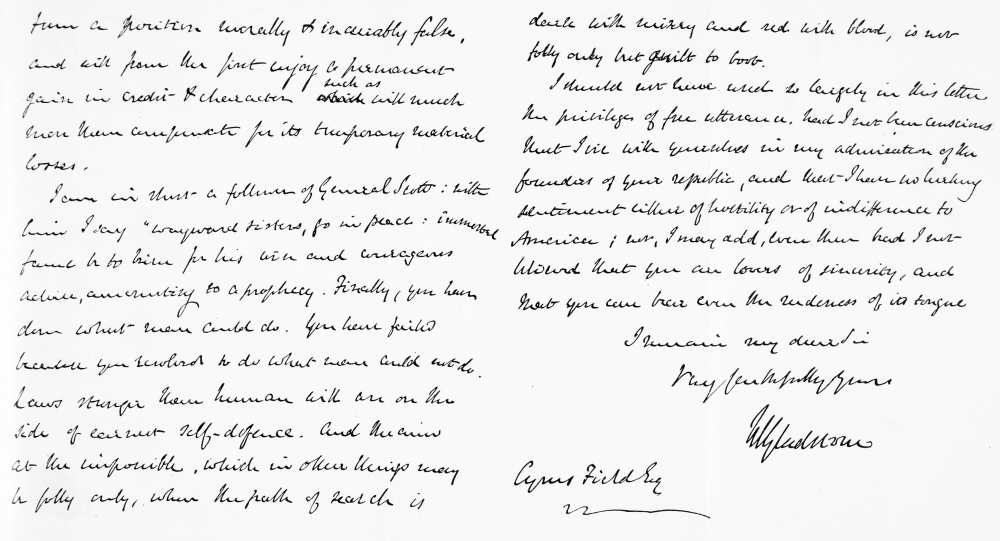 from a position morally & incurably false,
and will from the first enjoy a permanent
gain in credit & character such as which will much
more than compensate for its temporary material
losses.
I am in short a follower of General Scott: with
him I say "wayward sisters, go in peace: immortal
fame be to him for his wise and courageous
advice, amounting to a prophecy. Finally, you have
done what men could do. You have failed
because you resolved to do what men could not do.
Laws stronger than human will are on the
side of earnest self-defence. And the aim
at the impossible, which in other things may
be folly only, when the path of search is
dark with misery and red with blood, is not
folly only but guilt to boot.
I should not have used so largely in this letter
the privileges of free utterance, had I not been conscious
that I vie with yourselves in my admiration of the
founders of your republic, and that I have no lurking
sentiment either of hostility or of indifference to
America; nor, I may add, even then had I not
believed that you are lovers of sincerity, and
that you can bear even the rudeness of its tongue
I remain my dear Sir
Very faithfully yours
WGladstone
Cyrus Field Esq